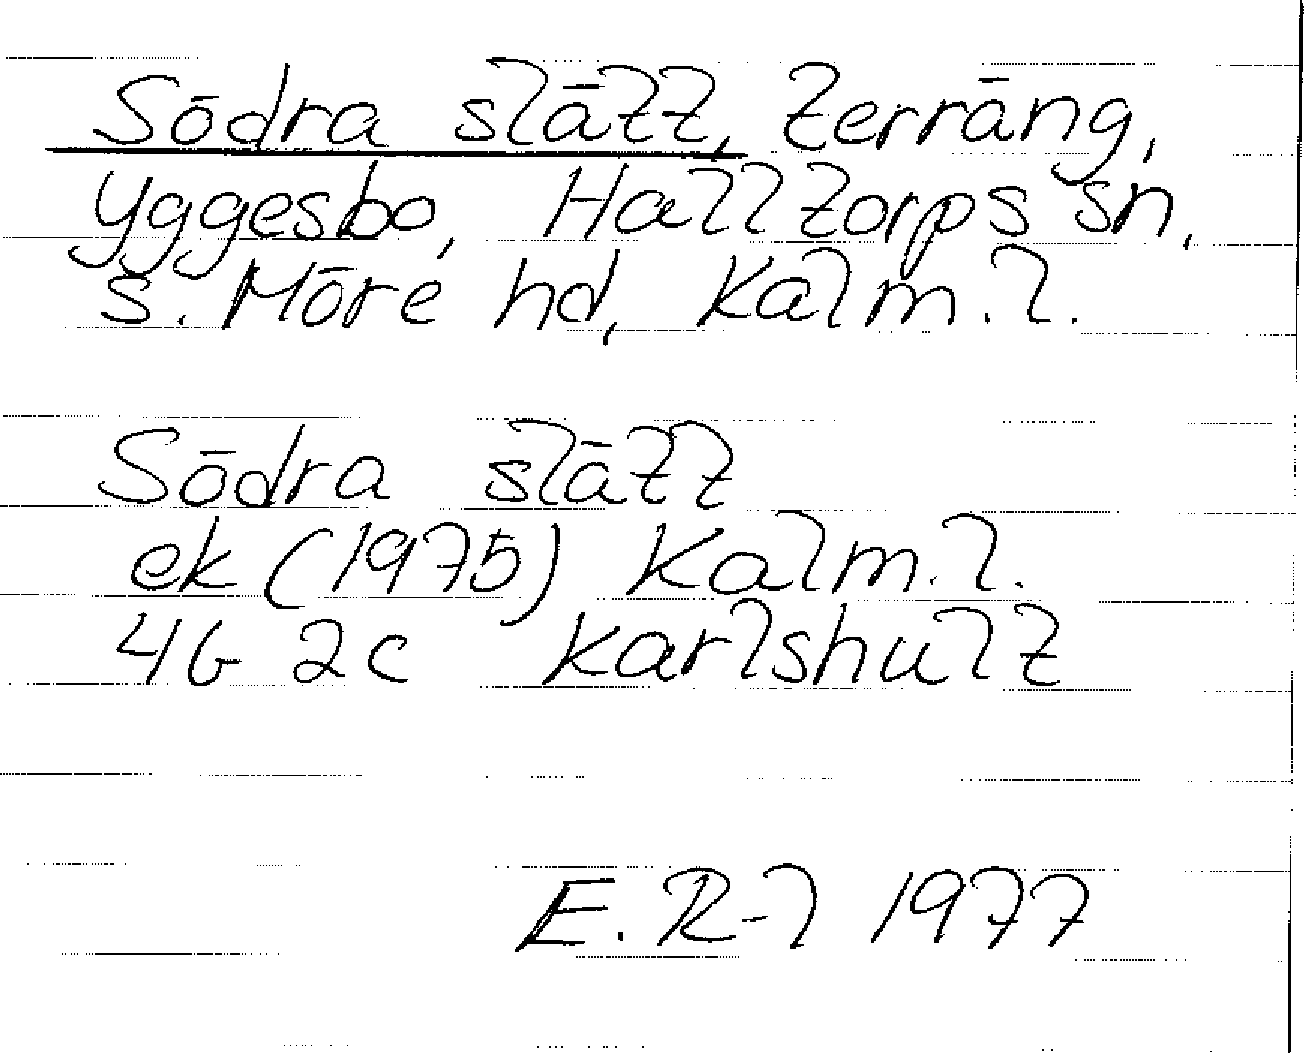 Södra slätt, terräng,
Yggesbo, Halltorps sn,
S. Möre hd, Kalm. l.
Södra slätt
ek (1975) Kalm. l.
4G 2c Karlshult
E. R-l 1977